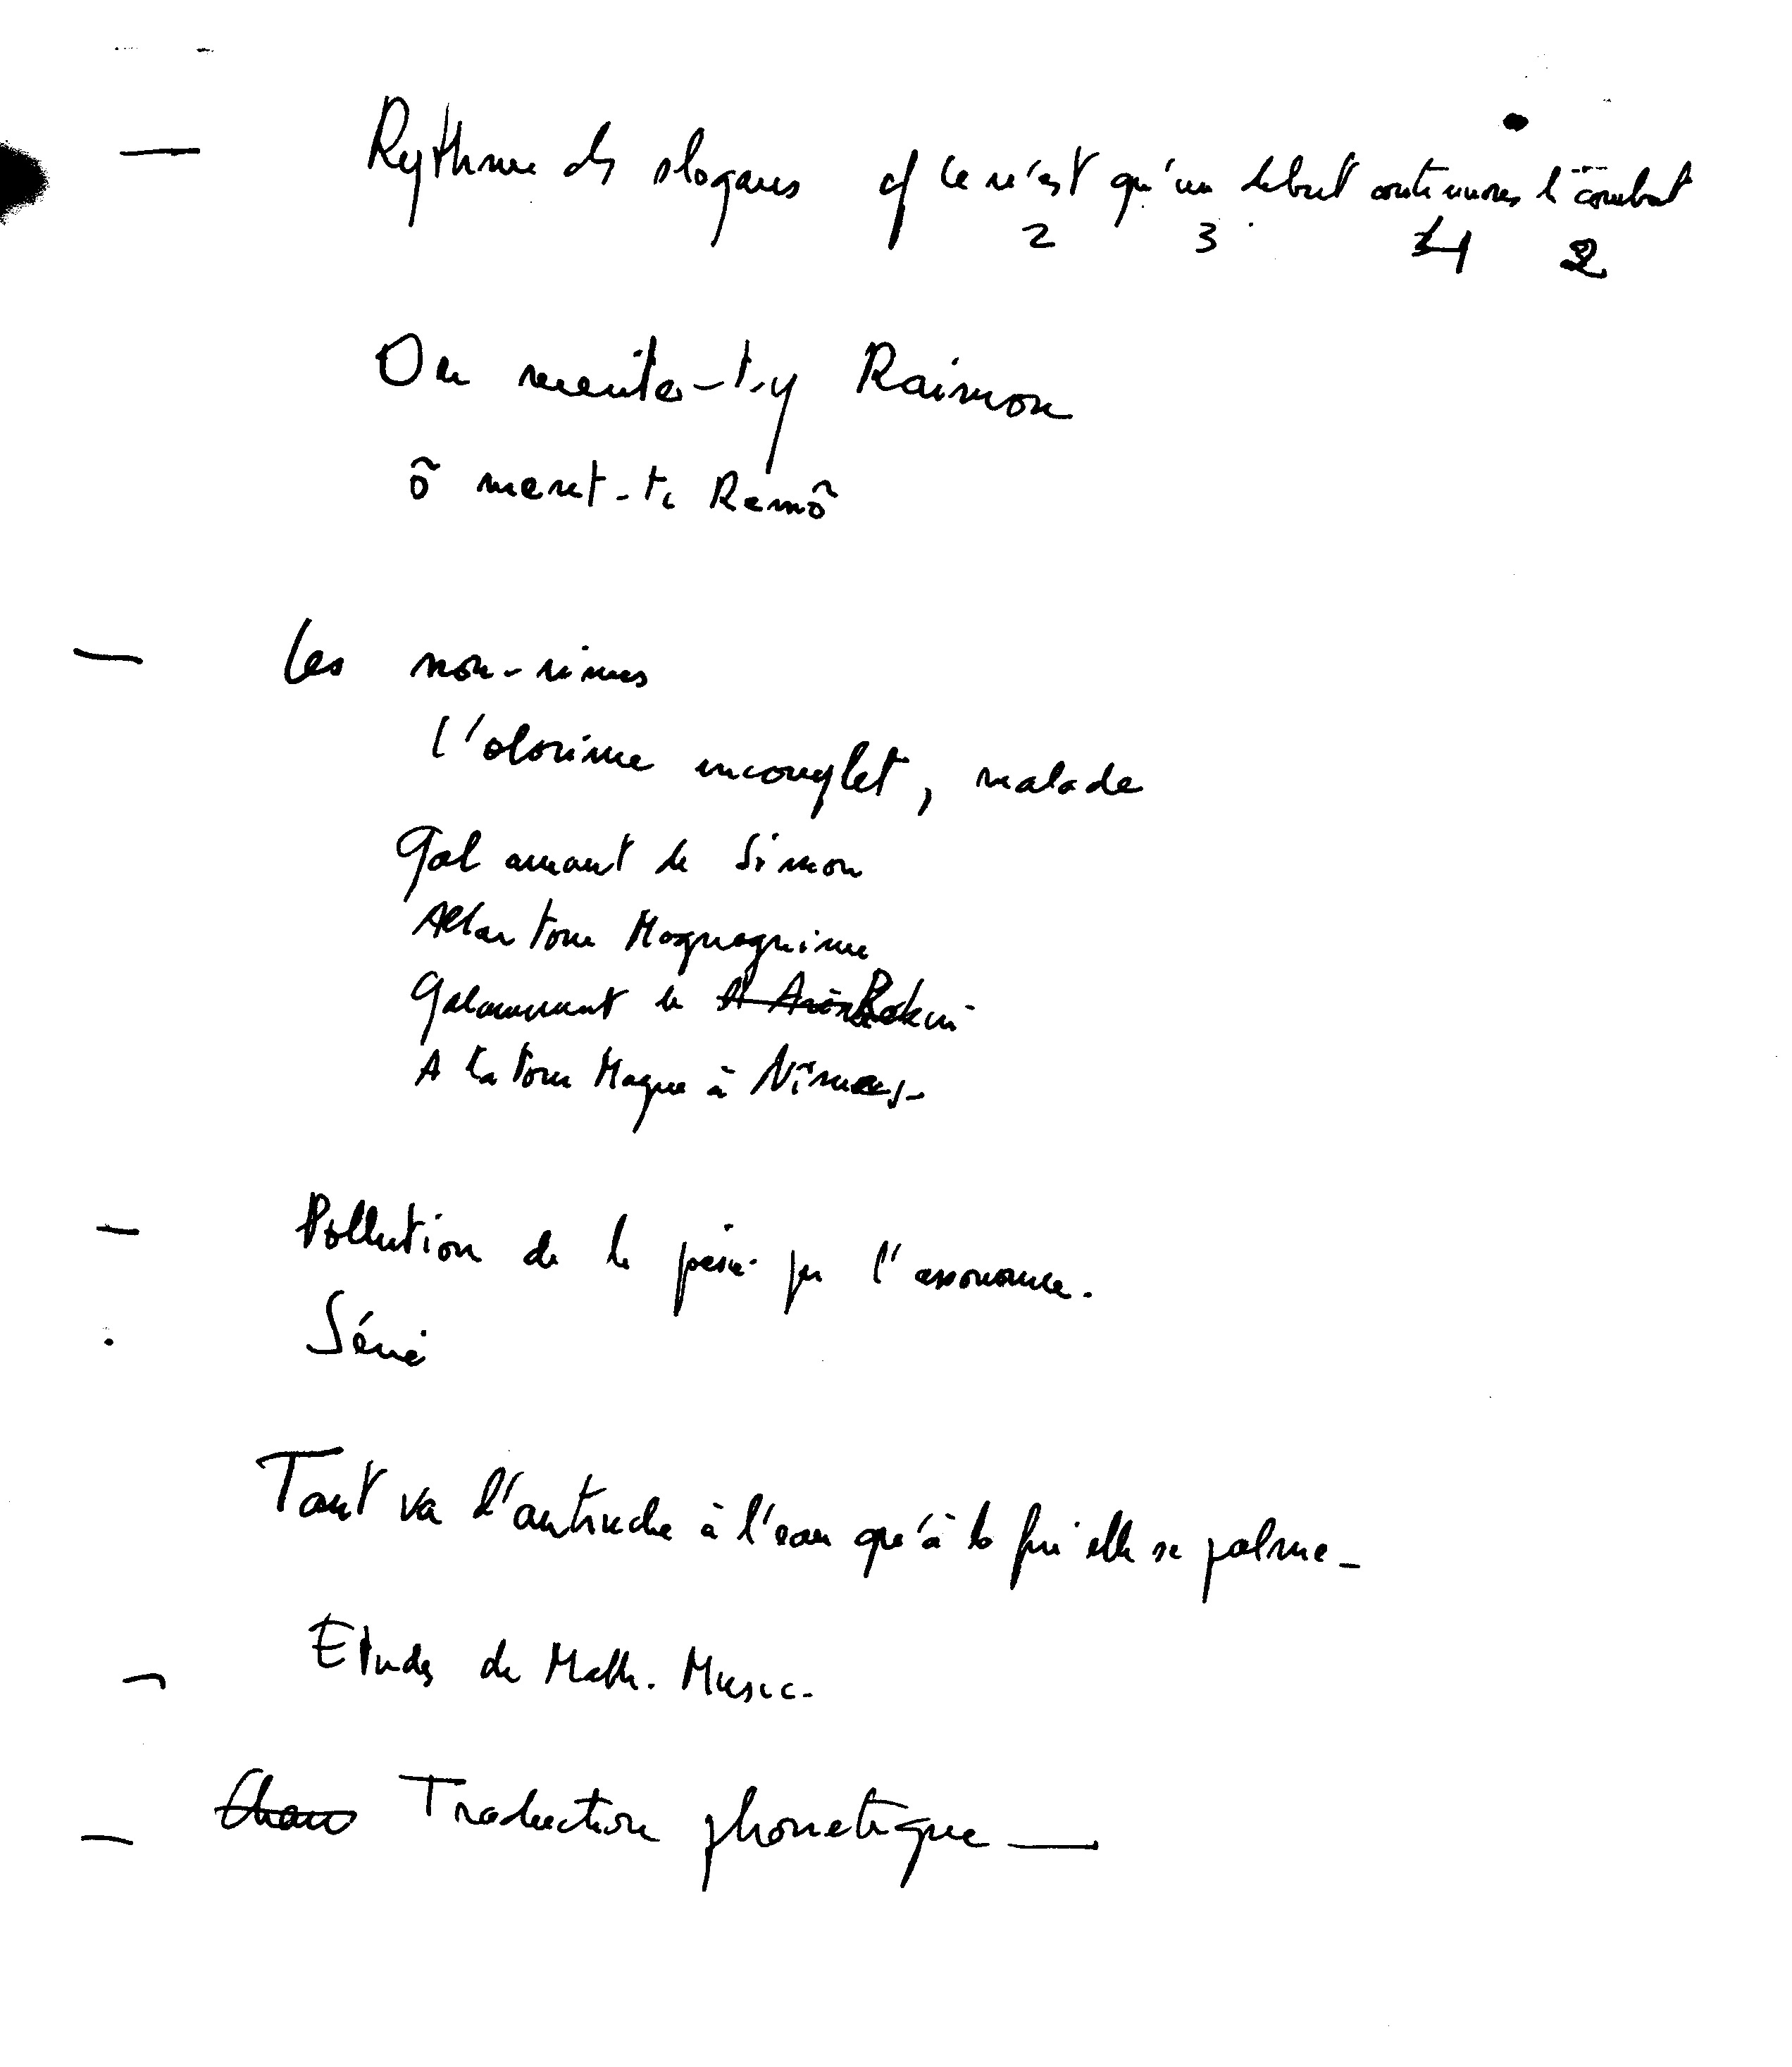 — Rythme des slogans cf ce n'est qu'un debut continuons le combat
2 3 4 2
On mente-t-y Raimon
õ ment-ti Remõ
— Les non-rimes
l'olorime incomplet, malade
Gal amant de Simon
Alla tour Magnagnime
Galamment de Rokin
A la tour Magne à Nîmes.
— Pollution de la poésie par l'assonance.
Série
Tant va l'autruche à l'eau qu'à la fin elle se palme.
— Etudes de Math. Music.
— Chan Traduction phonetique —